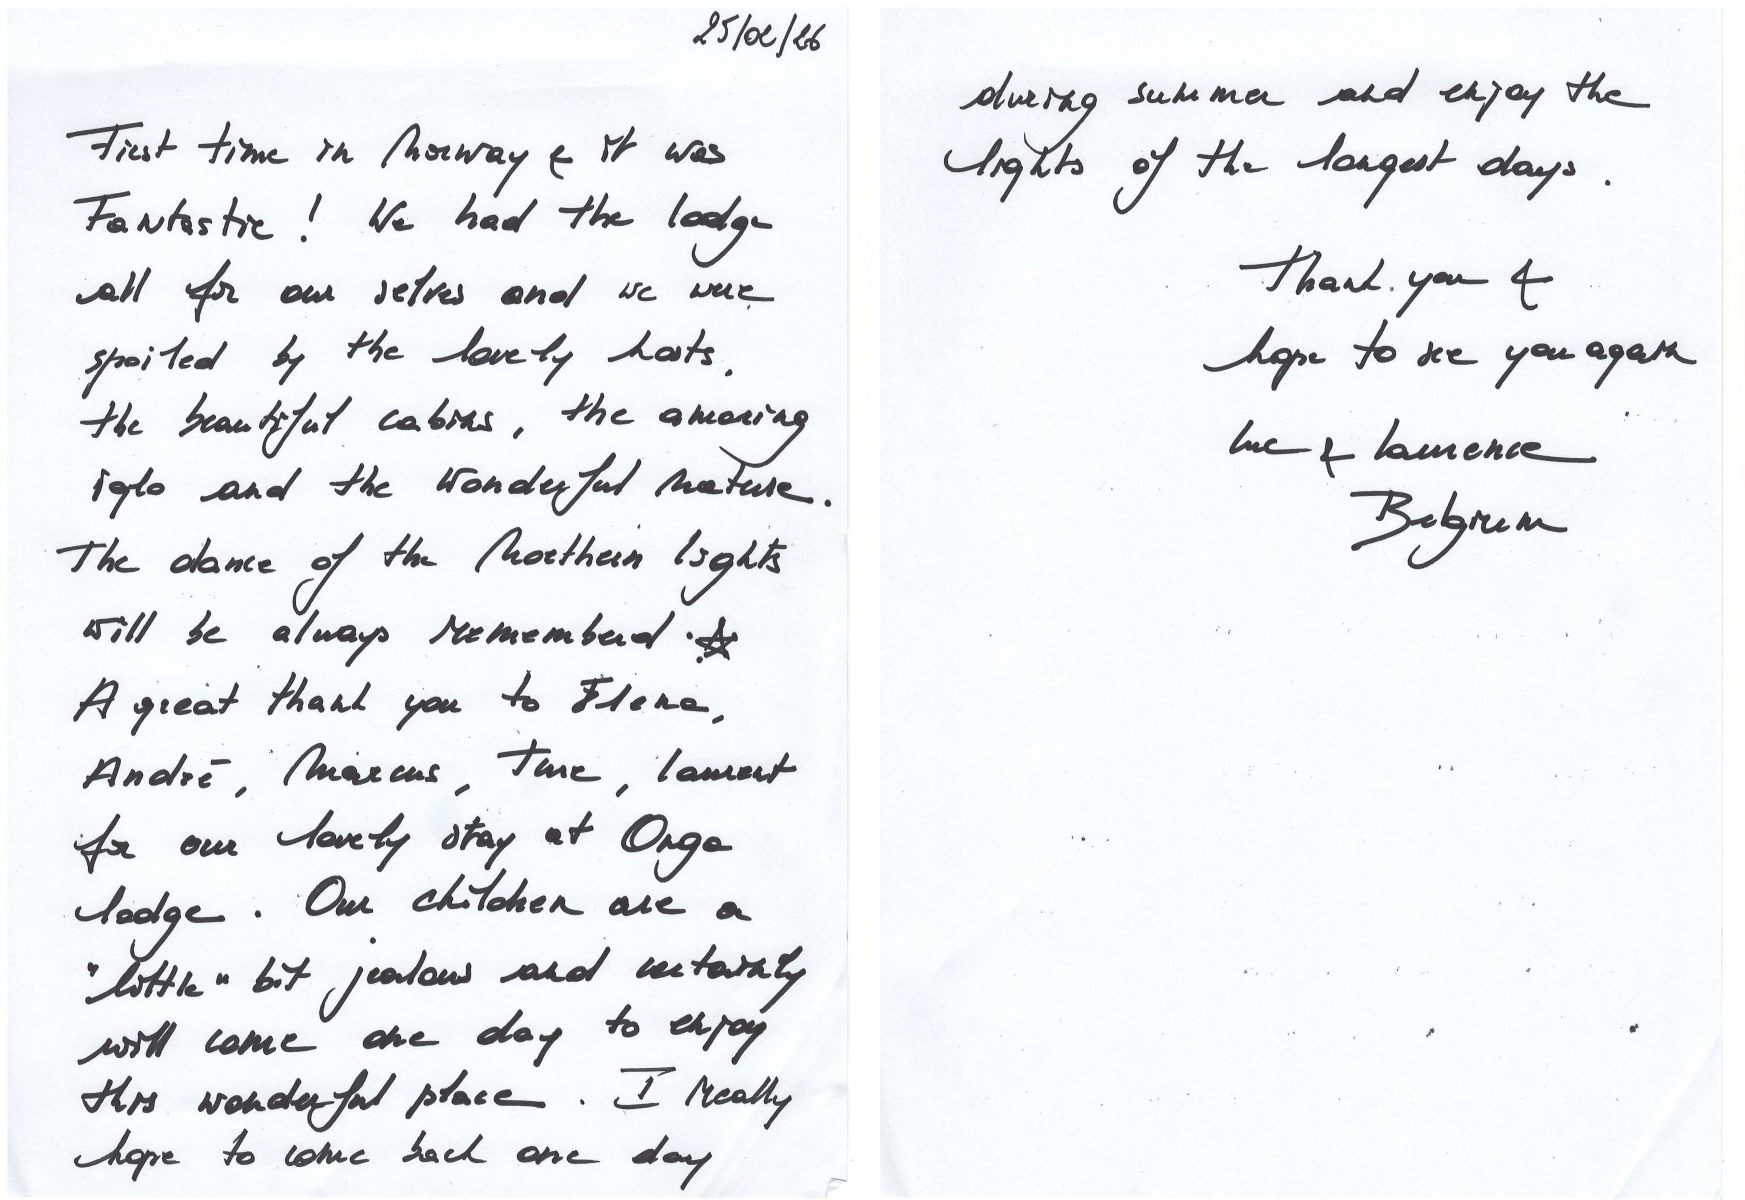 25/02/26
First time in Norway & it was
Fantastic ! We had the lodge
all for our selves and we were
spoiled by the lovely hosts.
the beautiful cabins, the amazing
iglo and the wonderful nature.
The dance of the Northern lights
will be always rememberd.
A great thank you to Elena,
André, Marcus, Ture, laurent
for our lovely stay at Onga
lodge. Our children are a
"little" bit jealous and certainly
will come one day to enjoy
this wonderful place. I really
hope to come back one day
during summer and enjoy the
lights of the longest days.
Thank you &
hope to see you again
luc & laurence
Belgium